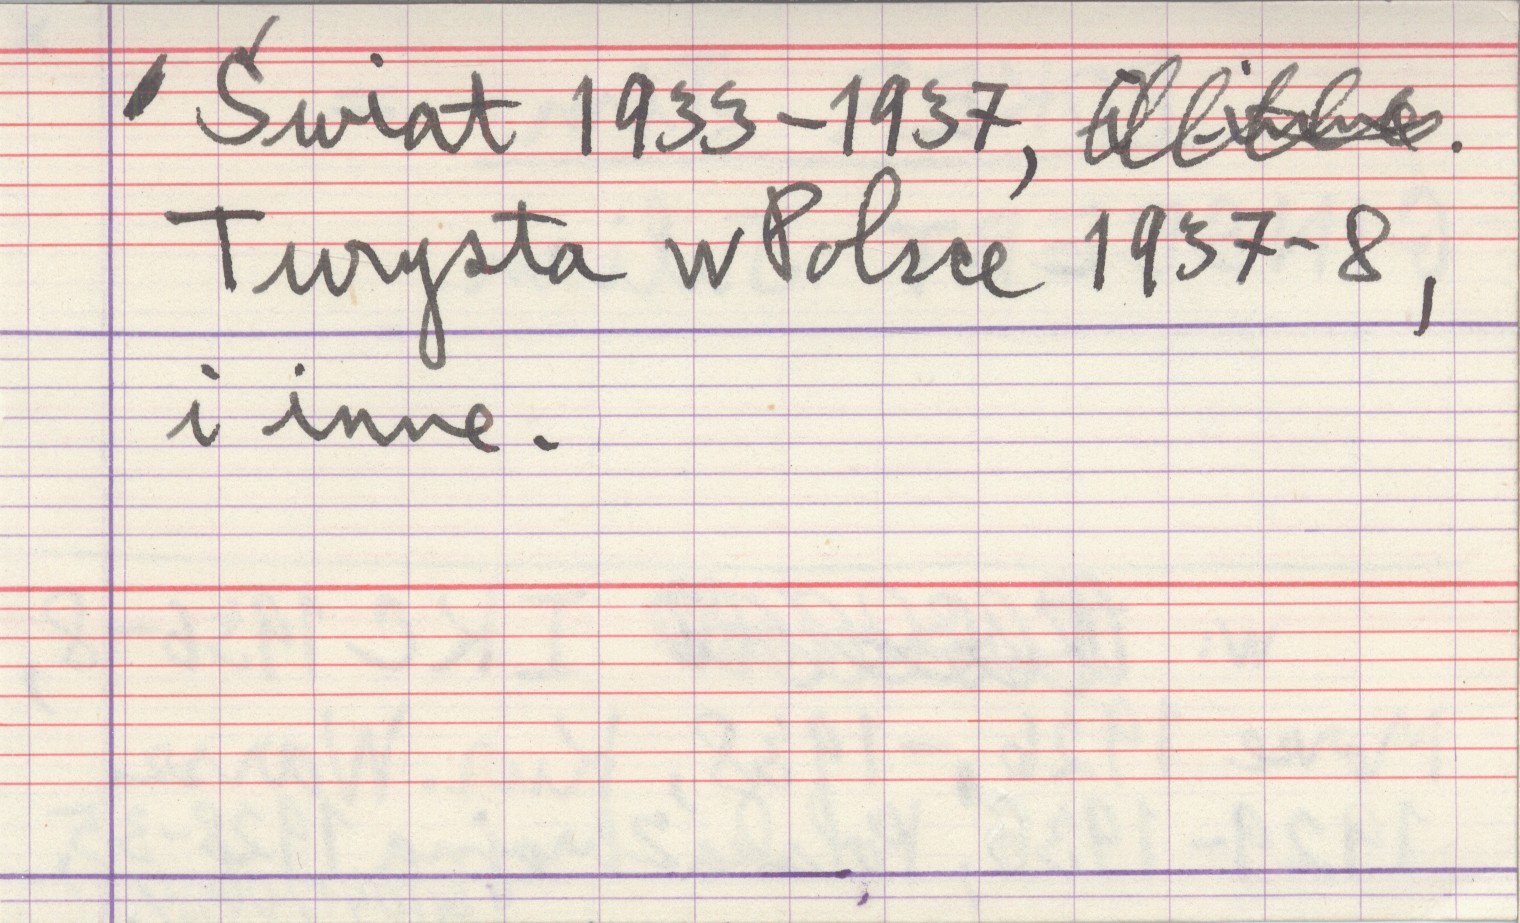 Świat 1933-1937,
Turysta w Polsce 1937-8,
i inne.